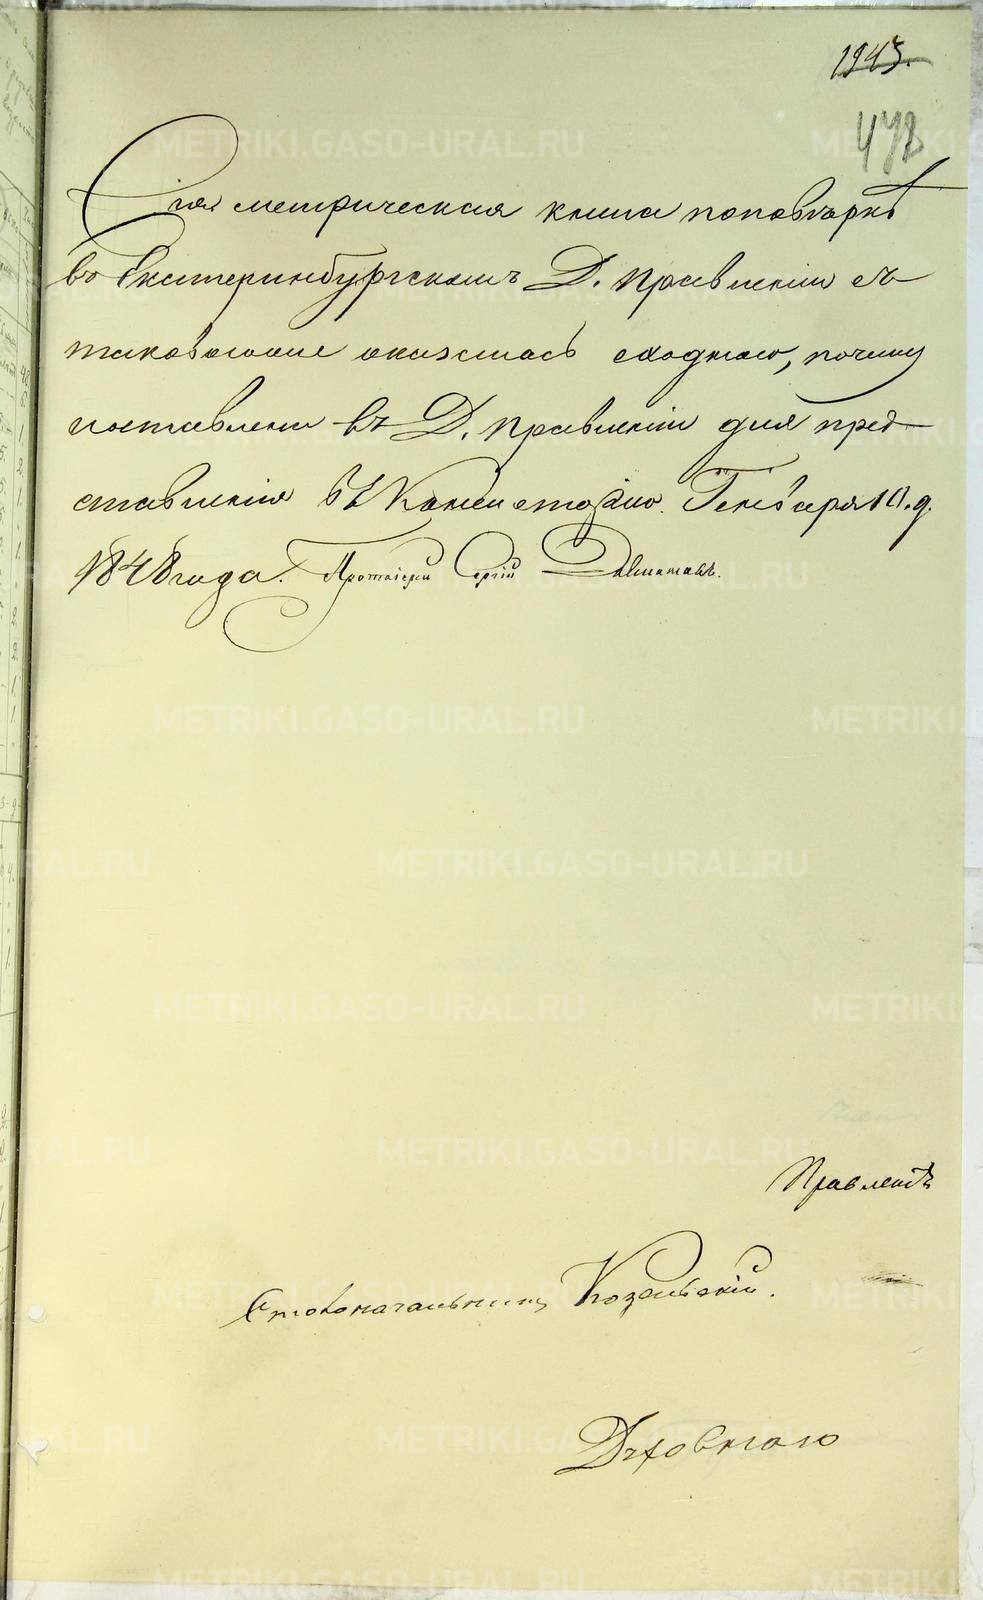 1943.
478
Сія метрическая книга поповѣркѣ
во Екатеринбургскомъ Д. Правленіи съ
таковою оказалась сходною, почему
поставлена въ Д. Правленіи для пред-
ставленія въ Консисторію. Генваря 10. д.
1848 года. Протоіерей Сергій
Правленія
Столоначальникъ Козельскій.
Духовнаго
METRIKI.GASO-URAL.RU